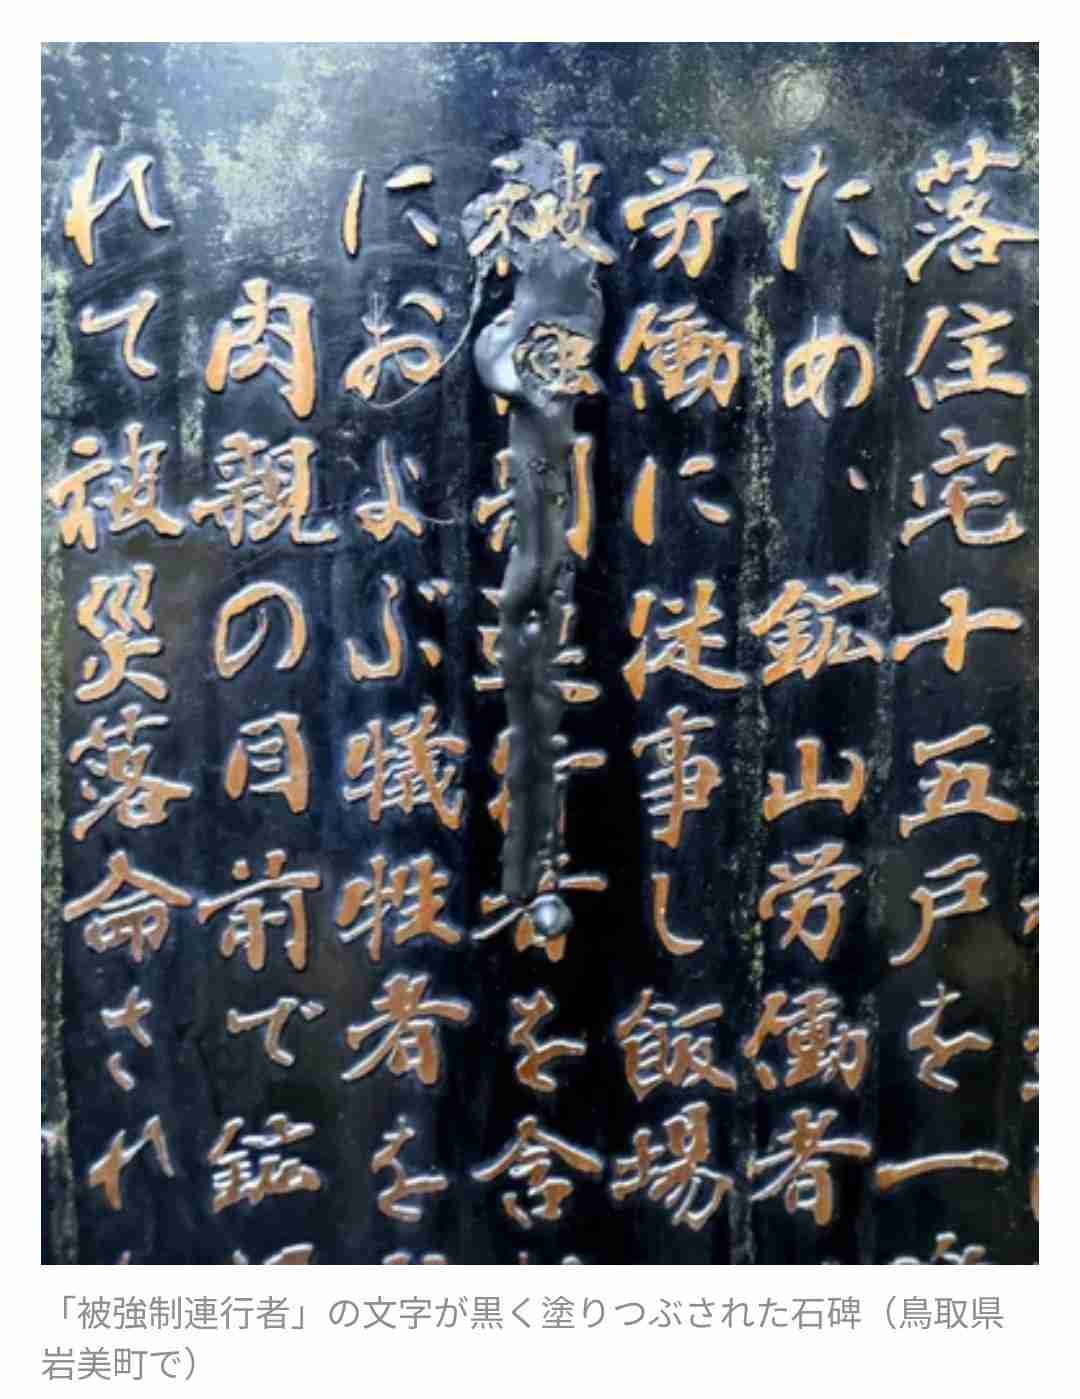 落住宅十五戸を一
ため、鉱山労働者
労働に従事し飯場
被強制連行者を含
におよぶ犠牲者を
肉親の目前で鉱
れて被災落命され
「被強制連行者」の文字が黒く塗りつぶされた石碑（鳥取県
岩美町で）